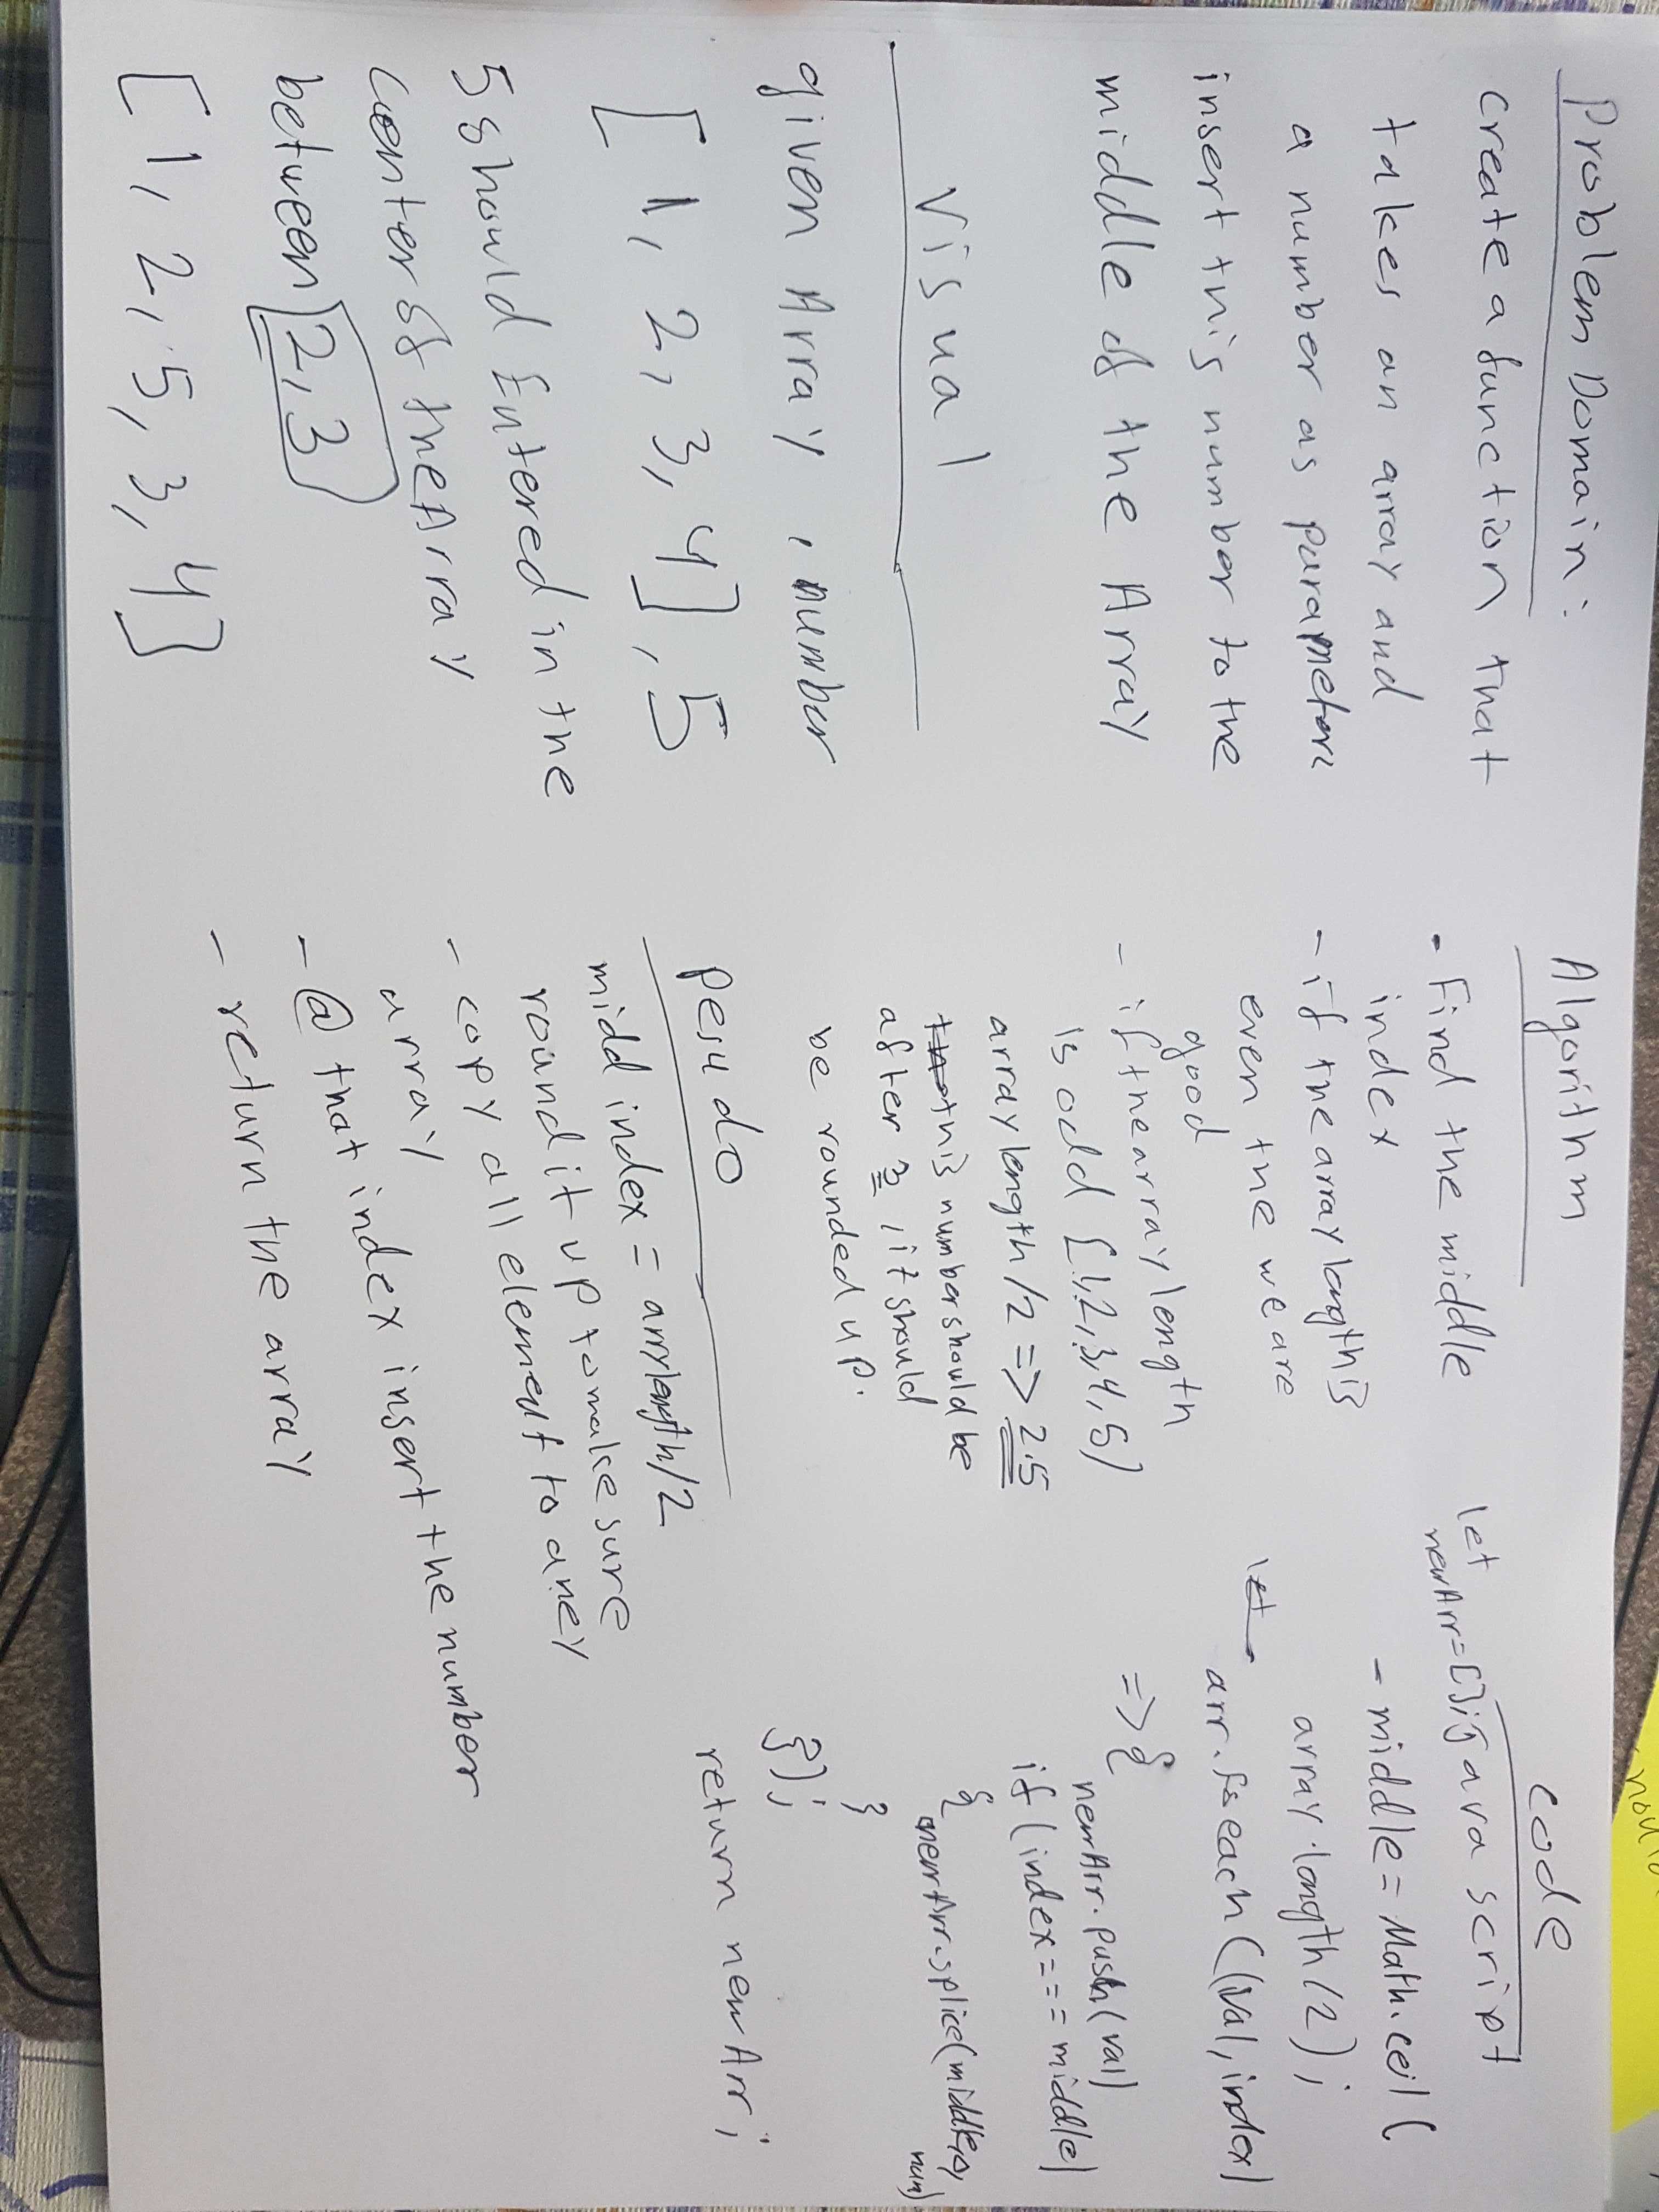 Problem Domain:
create a function that
takes an array and
a number as parameters
insert this number to the
middle of the Array
Visual
given Array , number
[ 1, 2, 3, 4] , 5
5 should Entered in the
center of the Array
between 2, 3
[ 1, 2, 5, 3, 4 ]
Algorithm
- Find the middle
index
- if the array length is
even the we are
good
- if the array length
is odd [1,2,3,4,5]
array length /2 => 2.5
this number should be
after 3 , it should
be rounded up.
pesudo
midd index = arrylength/2
round it up to make sure
- copy all element to a ney
array
- @ that index insert the number
- return the array
code
java script
let
newArr=[];
- middle = Math.ceil (
array.length/2);
let
arr.foreach ((val, index)
=> {
newArr.push(val)
if (index === middle)
{
newArr.splice(middle,0,
num)
}
});
return newArr;
should